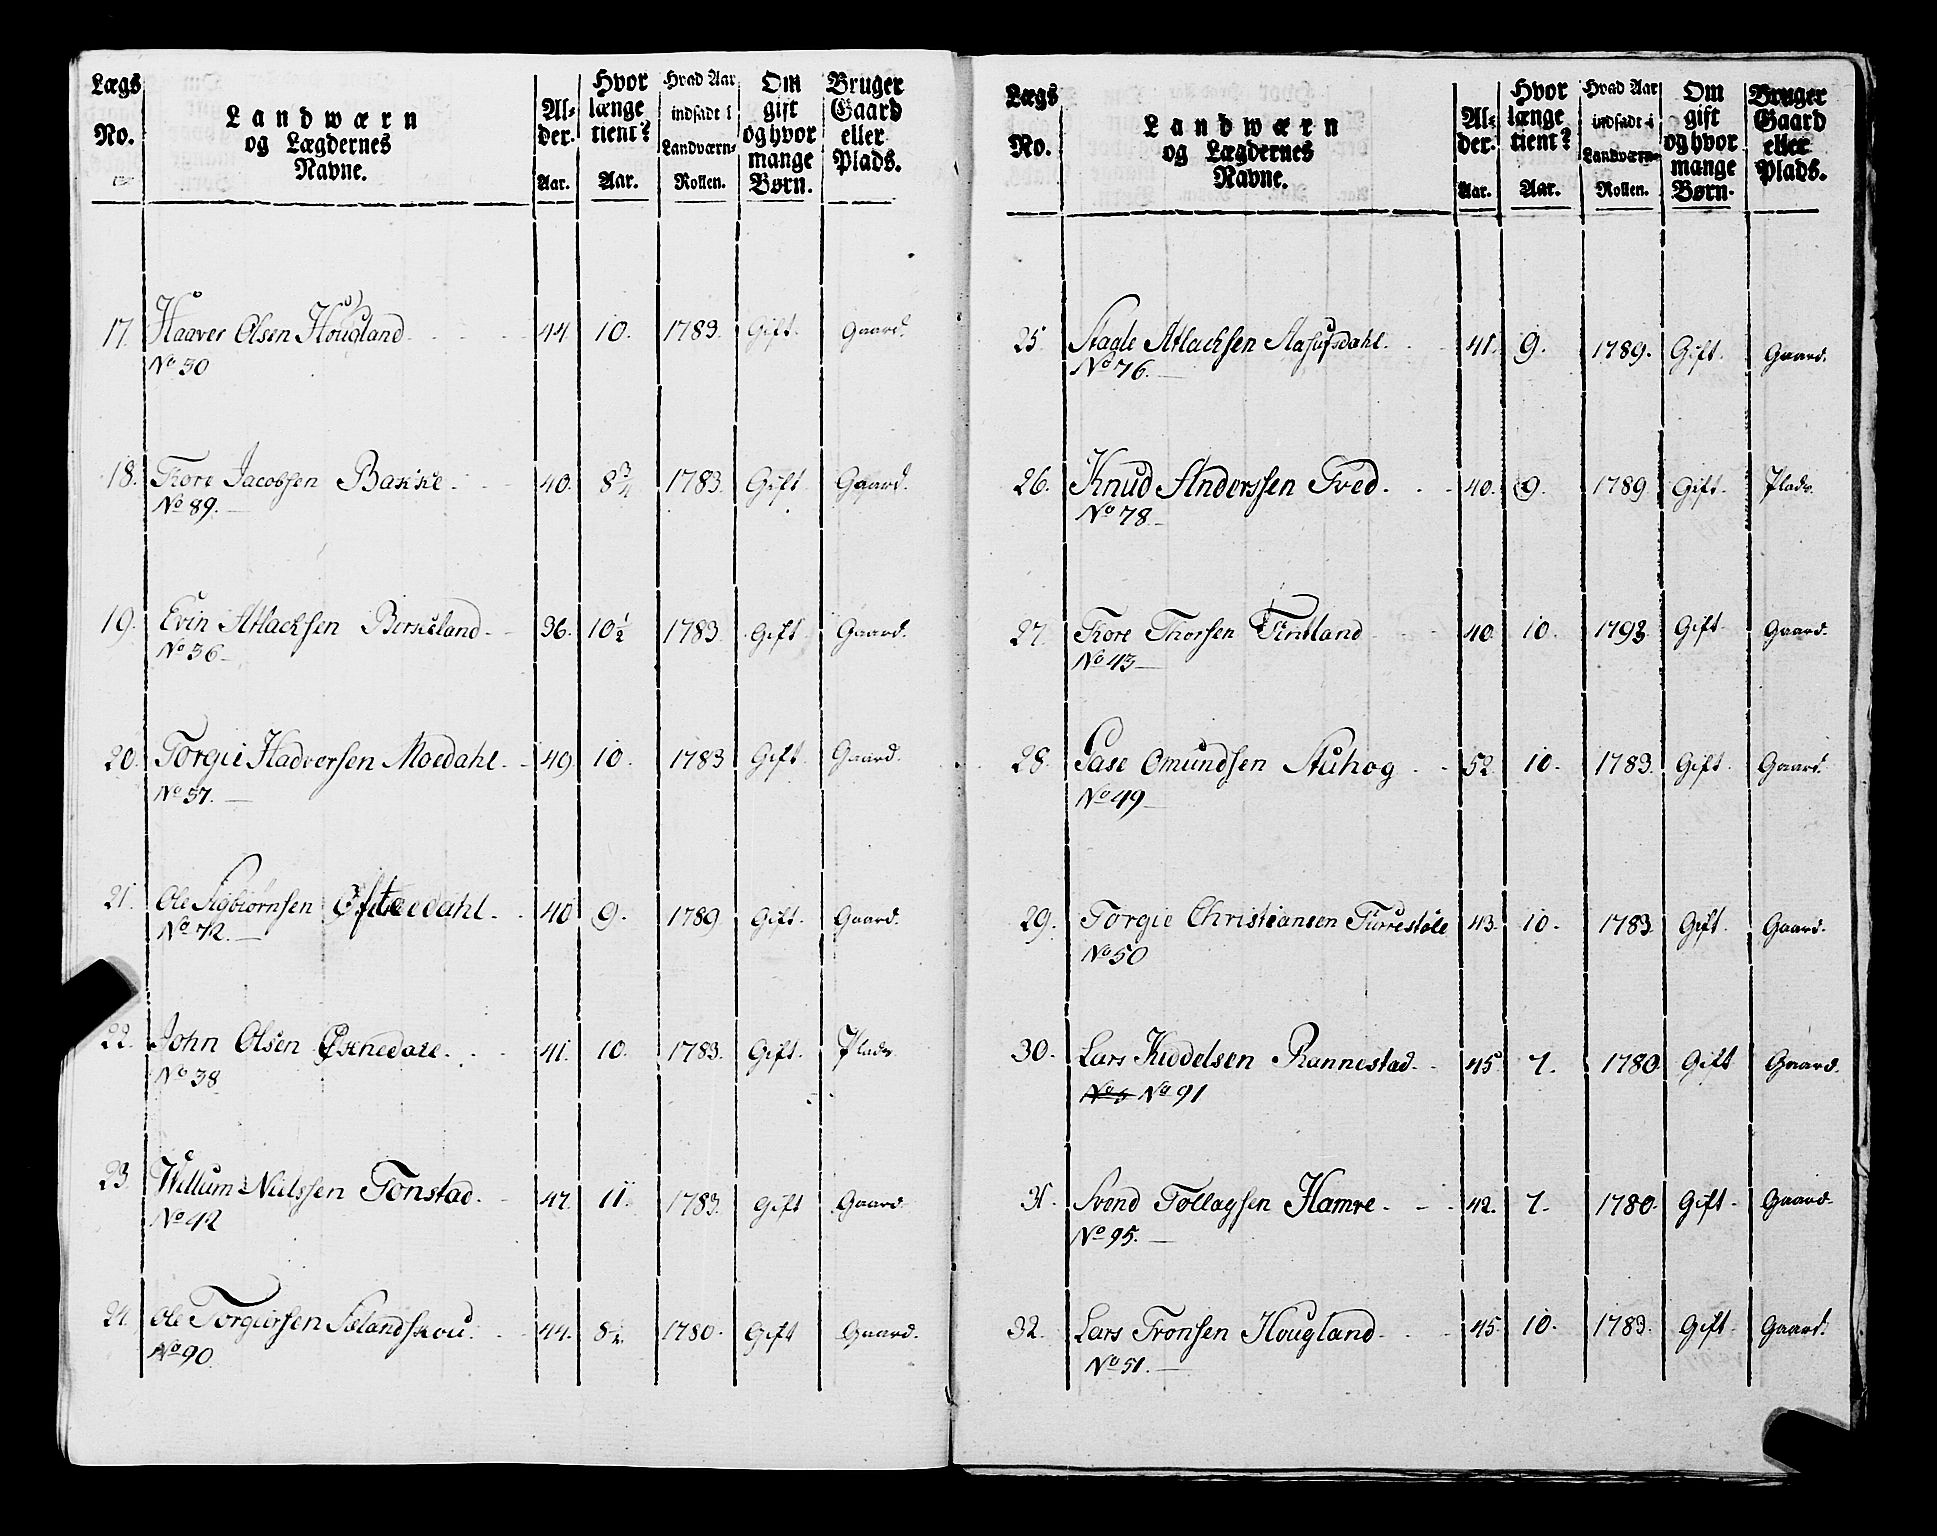 Lægs No. | Landwærn og Lægdernes Navne. | Al-der. Aar. | Hvor længe tient? Aar. | Hvad Aar indsadt i Landværn-Rollen. | Om gift og hvor mange Børn. | Bruger Gaard eller Plads.
17. Haaver Olsen Hougland 44. 10. 1783. Gift. Gaard.
No 30
18. Tore Jacobsen Bakke 40. 8 3/4 1783. Gift. Gaard.
No 89.
19. Evin Atlachsen Berkeland 36. 10 1/2 1783. Gift. Gaard.
No 36
20. Torgie Hadversen Moedahl 49 10. 1783 Gift. Gaard.
No 57.
21. Ole Sigbiørnsen 40 9. 1789 Gift. Gaard.
No 72.
22. John Olsen 41. 10. 1783. Gift. Plads
No 38
23. Willum Nielssen Tonstad. 47. 11. 1783. Gift Gaard.
No 42
24. Ole Torgiersen Sælandskou. 44. 8 1/2 1780. Gift Gaard.
No 90.
Lægs No. | Landwærn og Lægdernes Navne. | Al-der. Aar. | Hvor længe tient? Aar. | Hvad Aar indsadt i Landværn-Rollen. | Om gift og hvor mange Børn. | Bruger Gaard eller Plads.
25. Staale Atlachsen 41. 9. 1789. Gift. Gaard.
No 76.
26. Knud Anderssen Tved. 40. 9. 1789 Gift. Plads.
No 78
27. Tore Thorsen Fintland 40. 10. 1793. Gift. Gaard.
No 43
28. Aase Omundsen Stuhog 52 10. 1783. Gift. Gaard.
No 49
29. Torgie Christiansen Turrestøle 43. 10. 1783 Gift. Gaard.
No 50
30. Lars Kieddelsen Rannestad. 45. 7. 1780 Gift Gaard.
No 91
31. Svend Tollagsen Hamre. 42. 7. 1780. Gift. Gaard.
No 95.
32. Lars Tronsen Hougland 45. 10. 1783. Gift. Gaard.
No 51.